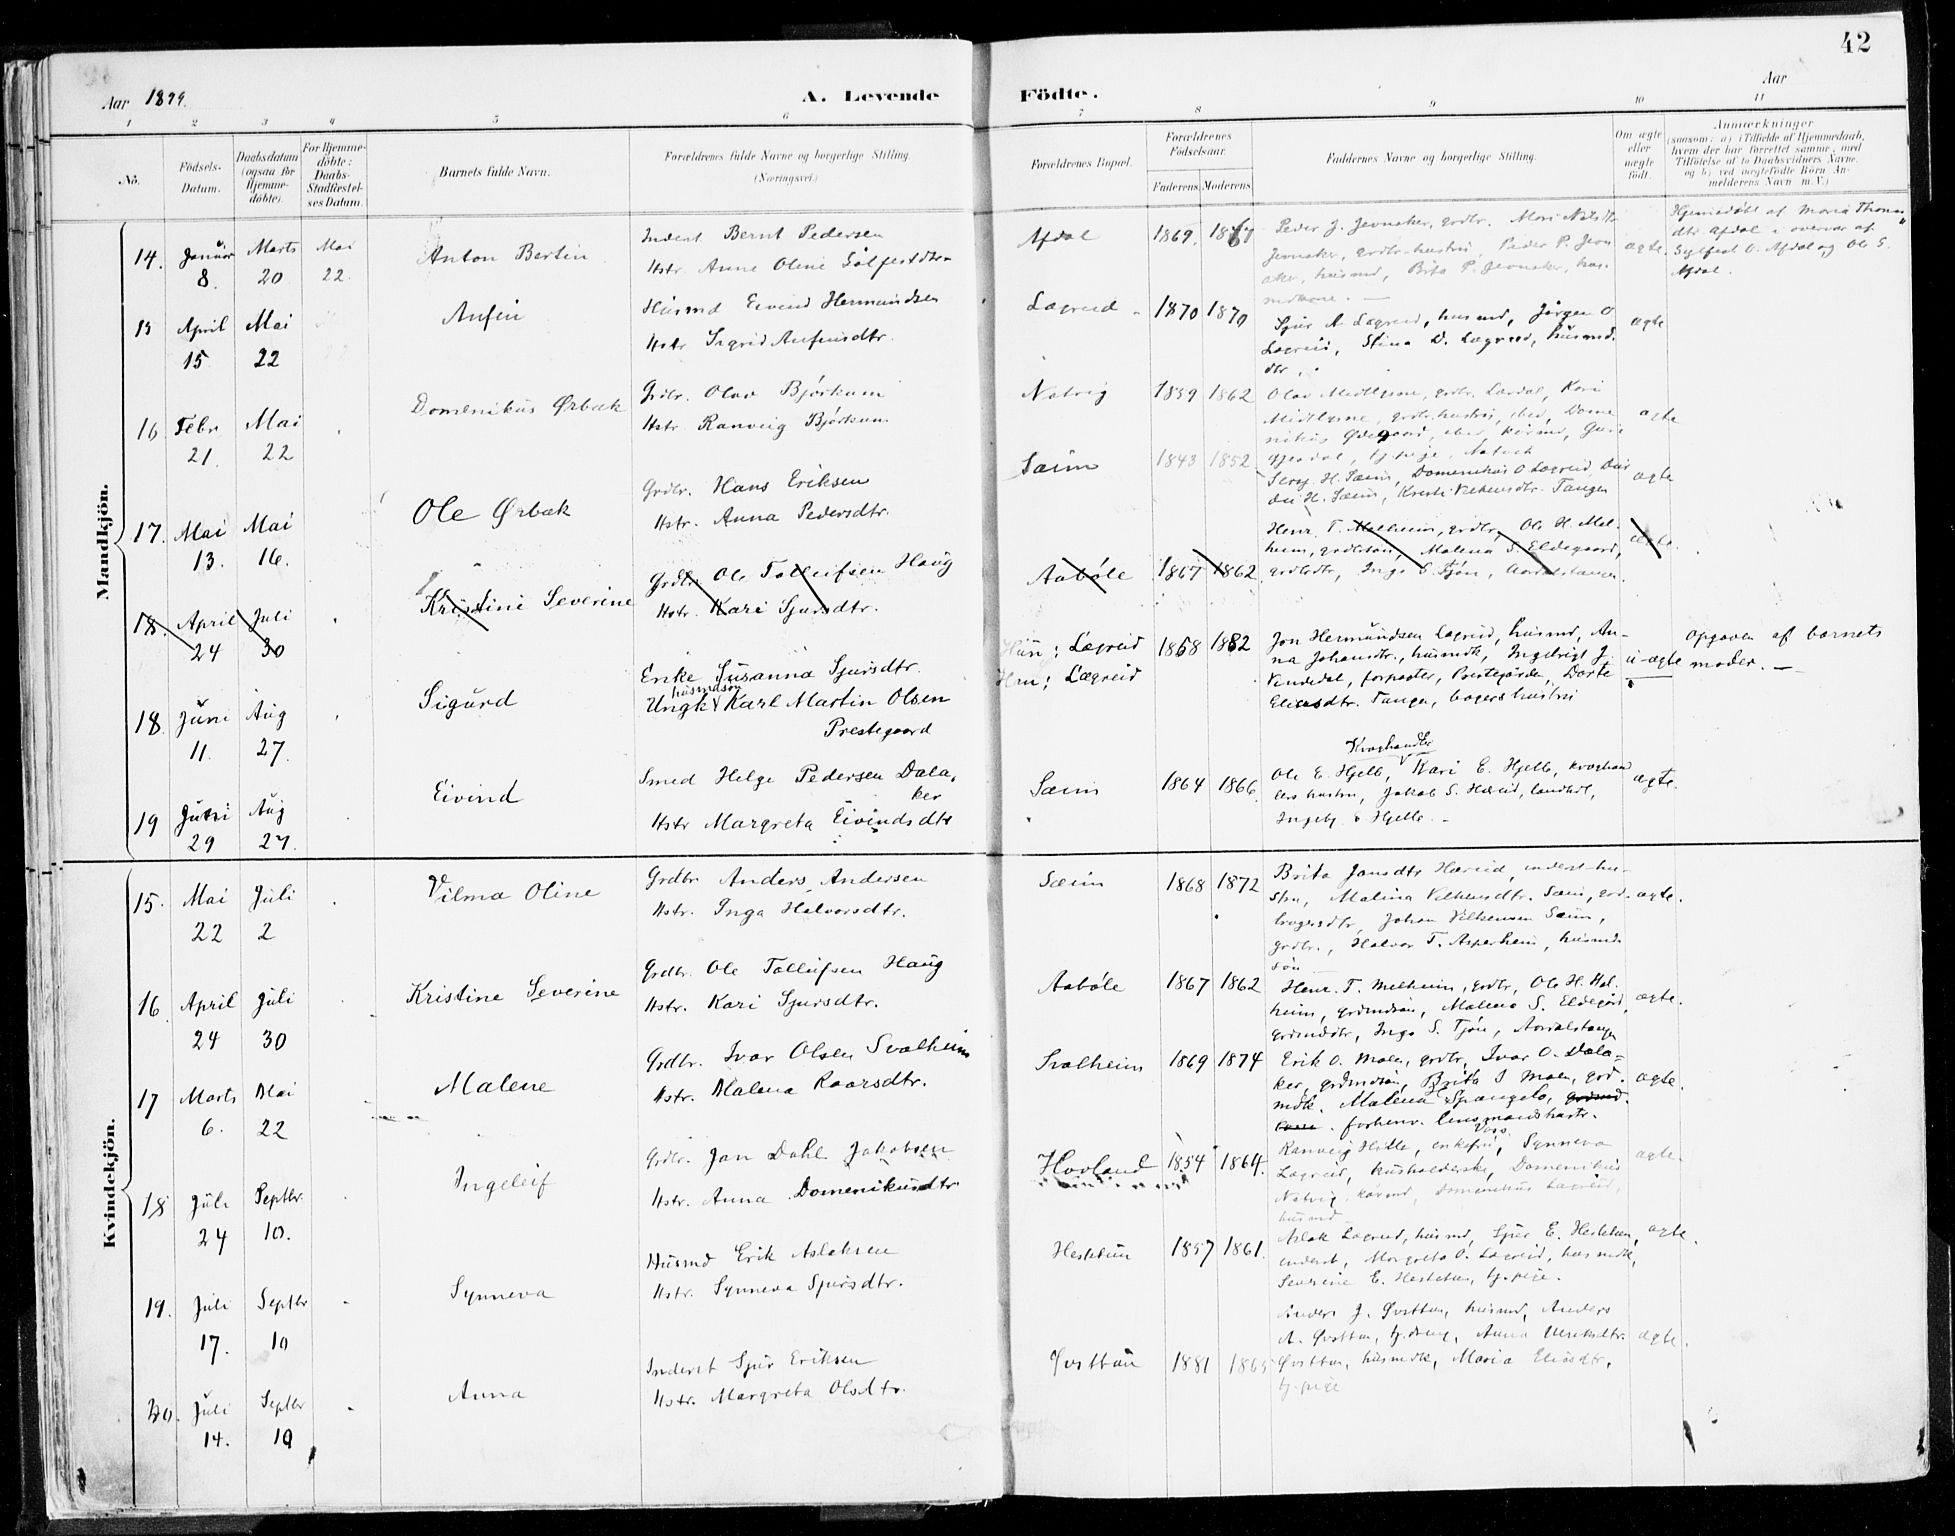 42
Aar 1899.
A. Levende Födte.
Aar
1 2 3 4 5 6 7 8 9 10 11
No.
Födsels-Datum.
Daabsdatum (ogsaa for Hjemmedöbte).
For Hjemmedöbte: Daabs-Stadfæstelses Datum.
Barnets fulde Navn.
Forældrenes fulde Navne og borgerlige Stilling.
(Næringsvei.)
Forældrenes Bopæl.
Forældrenes Födselsaar.
Faderens. Moderens.
Faddernes Navne og borgerlige Stilling.
Om ægte eller uægte födt.
Anmærkninger
(saasom: a) i Tilfælde af Hjemmedaab, hvem der har forrettet samme, med Tilföielse af to Daabsvidners Navne, og b) ved uægtefödte Börn Anmelderens Navn m. V.)
Mandkjön.
14. Januar 8. Marts 20 Mai 22.
Anton Bertin
Inderst Bernt Pedersen
Hstr. Anne Oline Sølfestdtr.
Afdal 1869. 1867
Peder J. Jevnaker, grdbr.
Jevnaker, grdbr. hustru, Peder P. Jevn
aker, husmd, Brita P. Jevnaker, hus
mdkone. —
ægte
Hjemmedøbt af Maria Thomas
dtr. Afdal i overvær af
Sylfest O. Afdal og Ole S.
Afdal.
15 April 15 Mai 22
Anfin
Husmd Eivind Hermundsen
Hstr Sigrid Anfinsdtr.
Lægreid 1870 1870
Sjur A. Lægreid, husmd, Jørgen O
Lægreid, Stina D. Lægreid, husmd.
dtr.
ægte
16 Febr 21. Mai 22
Domenikus Ørbæk
Grdbr. Olav Bjørkum
Hstr. Ranveig Bjørkum
Natvig 1859 1862
Olav Midtlyne, grdbr. Lærdal, Kari
Midtlyne, grdbr. hustru, ibid, Dome
nikus Ødegaard, ibid,
tj. pige, Natvik
ægte
17. Mai 13. Mai 16.
Ole Ørbæk
Grdbr. Hans Eriksen
Hstr. Anna Pedersdtr.
Sæim 1843 1852
H. Sæim, Domenikus O Lægreid,
H. Sæim, Tangen
ægte
18. April 24 Juli 30
Kristine Severine
Grdbr. Ole Tolleifsen Haug
Hstr. Kari Sjursdtr.
Aabøle 1867 1862
Henr. T. Melheim, grdbr, Ole H. Mel-
heim, grdbrsøn, Malena S. Eldegaard,
grdbrdtr, Inga S. Tjøn, Aardalstangen.
ægte
18. Juni 11. Aug 27.
Sigurd
Enke Susanna Sjursdtr.
husmdsøn
Ungk. Karl Martin Olsen
Prestegaard
Hun: Lægreid 1868 1882
Han: Lægreid
Jon Hermundsen Lægreid, husmd, An-
na Johansdtr., husmdk, Ingebrigt J.
Vendedal, forpagter, Prestegårde, Dorte
Eliasdtr. Tangen, bagers hustru
u-ægte
Opgaven af barnets
moder. —
19 Juni 29 Aug 27.
Eivind
Smed Helge Pedersen Dala-
ker
Hstr Margreta Eivindsdtr
Sæim 1864 1866
Kraghandler
Ole E. Hjelle, Kari E. Hjelle, kraghand
lers hustru, Jakob S. Hæreid, landhdl,
Ingebj. E Hjelle. -
ægte.
Kvindekjön.
15. Mai 22 Juli 2
Vilma Oline
Grdbr Anders Andersen
Hstr. Inga Halvorsdtr.
Sæim 1868 1872
Brita Jonsdtr Hæreid, inderst-hu-
stru, Malina Vilhemsdtr. Sæim, grd-
brugersdtr, Johan Vilhemsen Sæim,
grdbr., Halvor T. Asperheim, husmd
søn
ægte.
16 April 24 Juli 30
Kristine Severine
Grdbr. Ole Tolleifsen Haug
Hstr. Kari Sjursdtr.
Aabøle 1867 1862
Henr. T. Melheim, grdbr, Ole H. Mel-
heim, grdmdsøn, Malena S. Eldegård
grdmdsdtr, Inga S. Tjøn, Aardalstangen
ægte.
17 Marts 6. Mai 22
Malene
Grdbr. Ivar Olsen Svalheim
Hstr. Malena Roarsdtr.
Svalheim 1869 1874
Erik O. Moen, grdbr, Ivar O. Dala-
ker, grdmdsøn, Brita I Moen, grd-
mdk. Malena Spangelo, grdmd.
kone. forhenv. lensmandshustr.
ægte.
18 Juli 24 Septbr. 10.
Ingeleif
Grdbr. Jan Dahl Jakobsen
Hstr. Anna Domenikusdtr
Hovland 1854 1864.
Voss
Ranveig Hille, enkefru, Synneva
Lægreid, husholderske, Domenikus
Natvig, Domenikus Lægreid,
husmd
ægte.
19. Juli 17. Septbr 10
Synneva
Husmd Erik Aslaksen
Hstr. Synneva Sjursdtr.
Hestetun 1857 1861.
Aslak Lægreid, husmd, Sjur E. Hestetun,
inderst, Margreta O. Lægreid, husmdk,
Severine E. Hestetun, tj. pige.
ægte.
20. Juli 14. Septbr 10
Anna
Inderst Sjur Eriksen
Hstr. Margreta Olsdtr.
Øvsttun 1881 1865
Anders J. Øvsttun, husmd, Anders
A. Øvsttun, tj. dreng, Anna Ulriksdtr.
Øvsttun, husmdk, Maria Eliasdtr,
tj. pige
ægte.